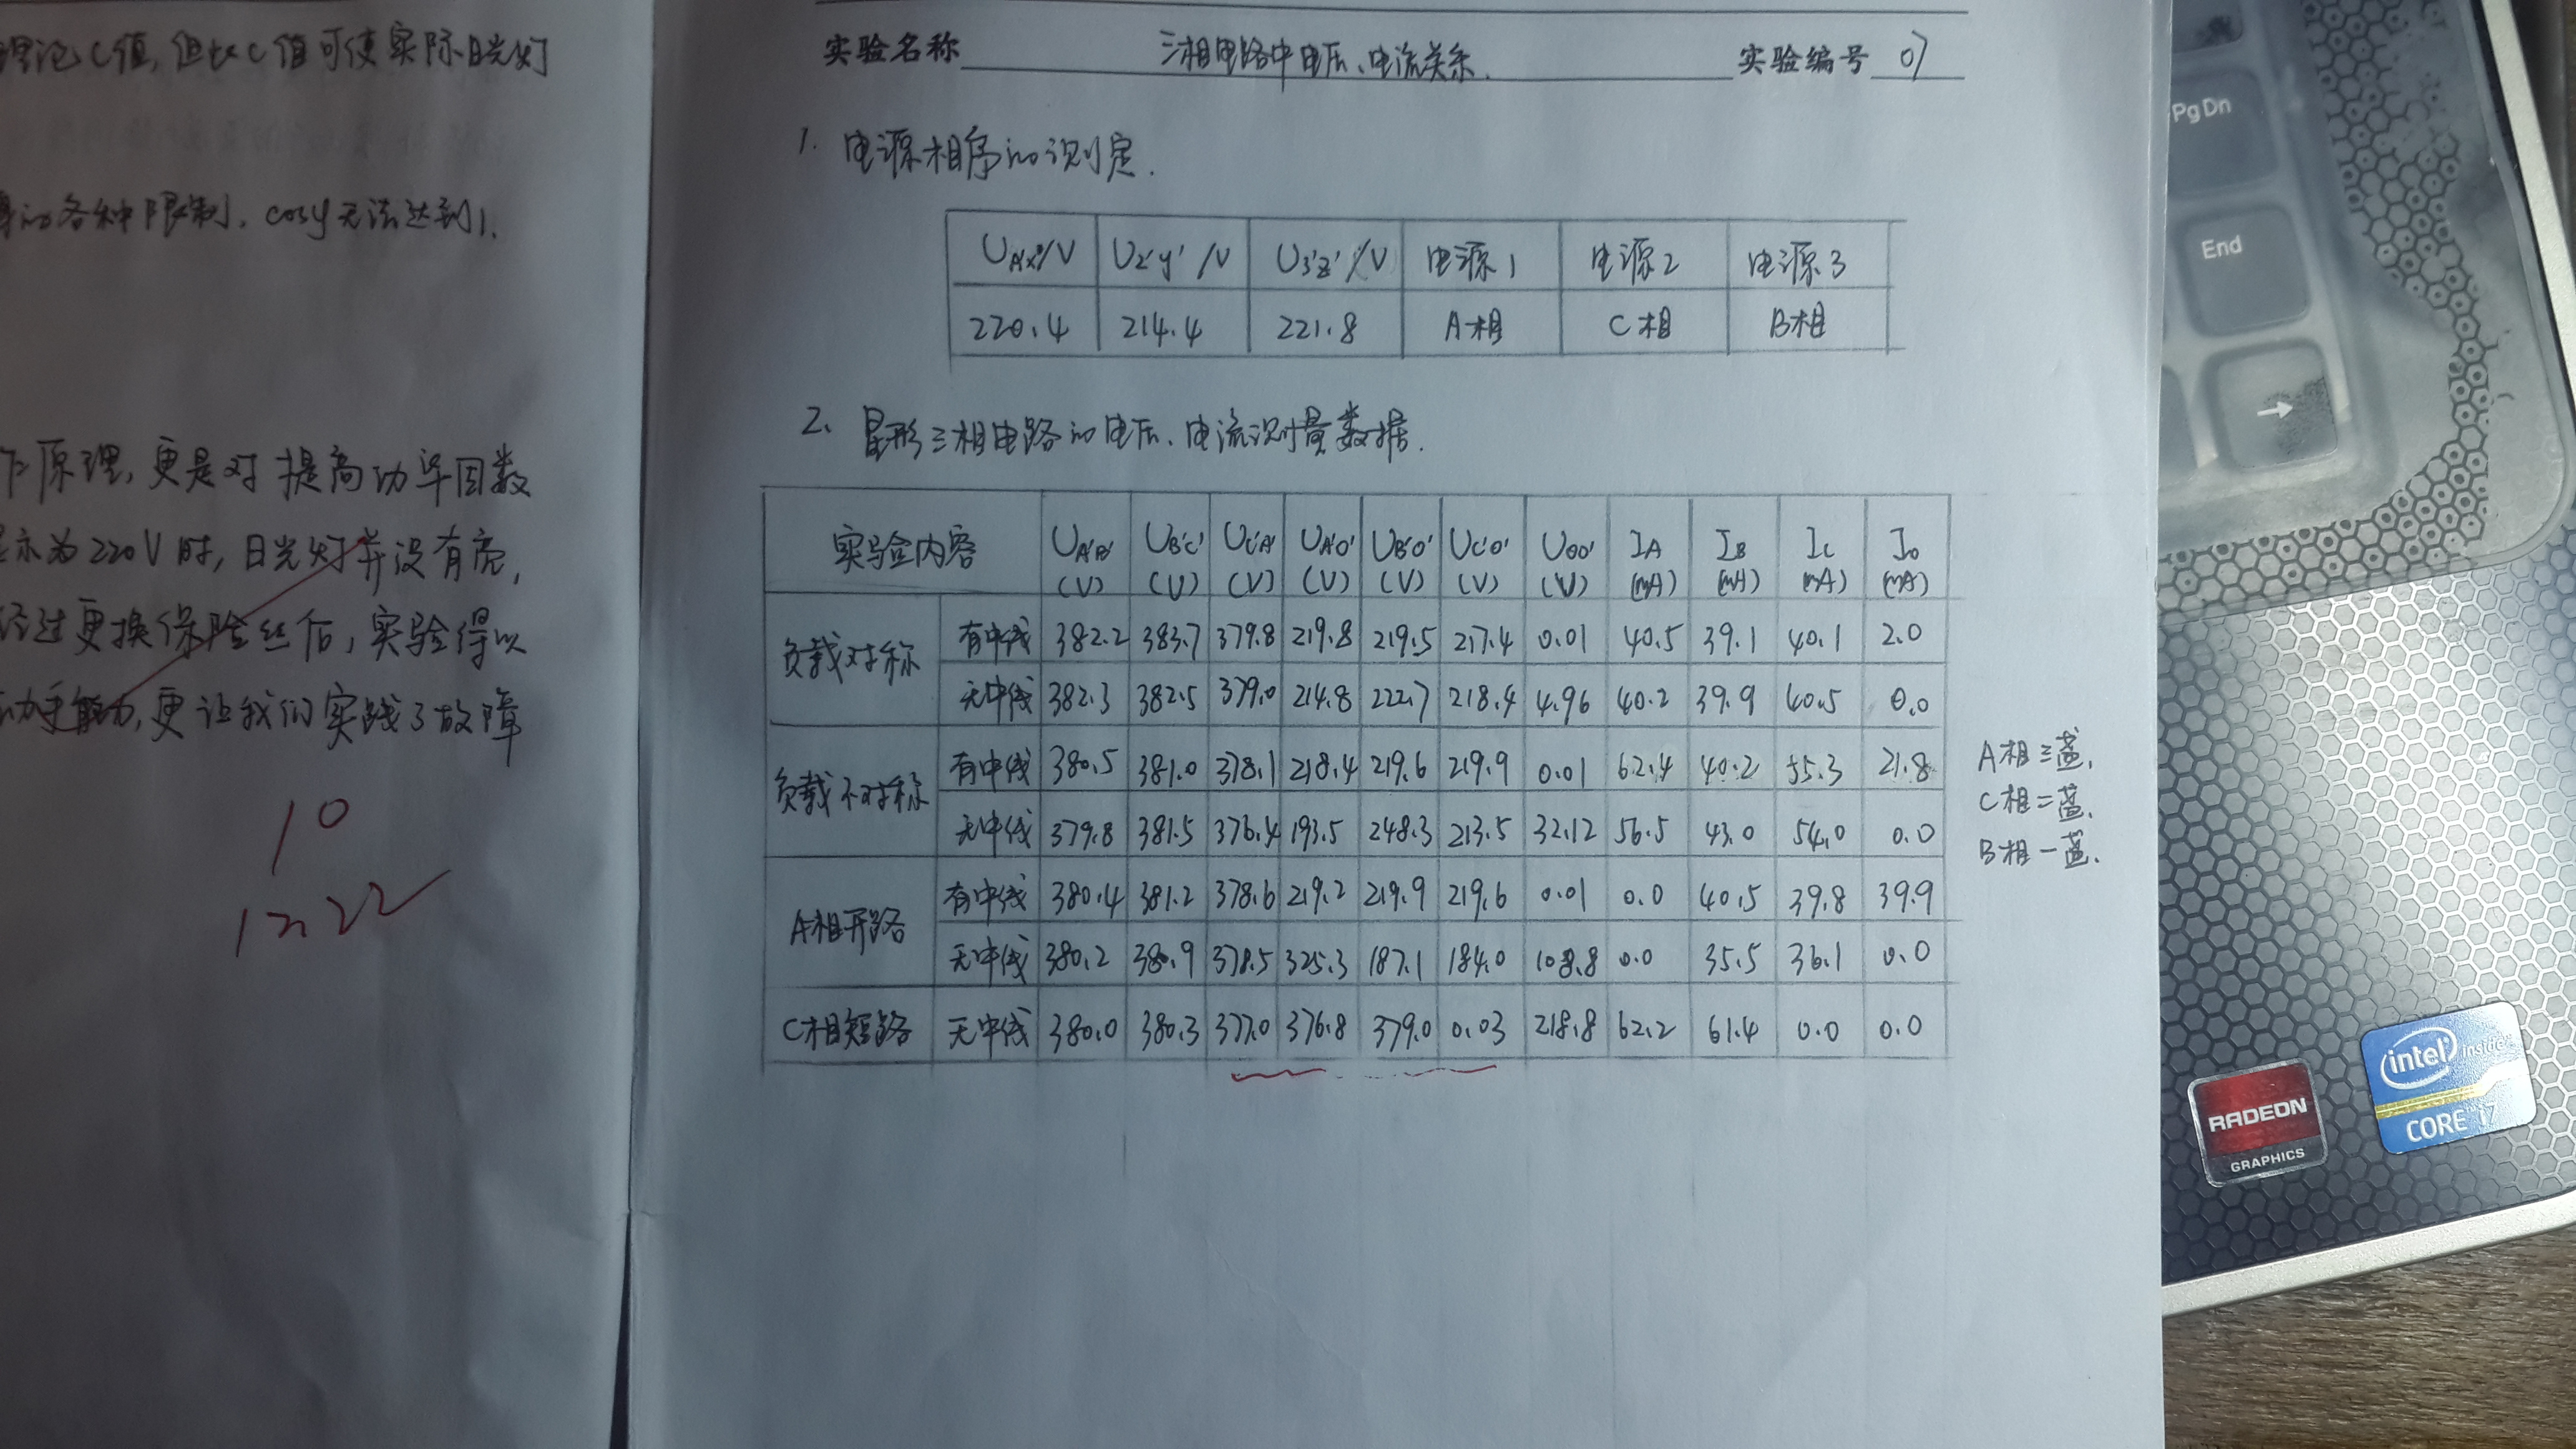 理论C值,但此C值可使实际日光灯
的各种限制,cosφ无法达到1.
原理,更是对提高功率因数
示为220V时,日光灯并没有亮,
经过更换保险丝后,实验得以
动手能力,更让我们实践了故障
10
12.22
实验名称 三相电路中电压、电流关系. 实验编号 07
1. 电源相序的测定.
UA'X'/V U2'y'/V U3'z'/V 电源1 电源2 电源3
220.4 214.4 221.8 A相 C相 B相
2. 星形三相电路的电压、电流测量数据.
实验内容 UA'B' (V) UB'C' (V) UC'A' (V) UA'O' (V) UB'O' (V) UC'O' (V) UOO' (V) IA (mA) IB (mA) IC (mA) Io (mA)
负载对称 有中线 382.2 383.7 379.8 219.8 219.5 217.4 0.01 40.5 39.1 40.1 2.0
无中线 382.3 382.5 379.0 214.8 222.7 218.4 4.96 40.2 39.9 40.5 0.0
负载不对称 有中线 380.5 381.0 378.1 218.4 219.6 219.9 0.01 62.4 40.2 55.3 21.8
无中线 379.8 381.5 376.4 193.5 248.3 213.5 32.12 56.5 43.0 54.0 0.0
A相开路 有中线 380.4 381.2 378.6 219.2 219.9 219.6 0.01 0.0 40.5 39.8 39.9
无中线 380.2 380.9 378.5 325.3 187.1 184.0 108.8 0.0 35.5 36.1 0.0
C相短路 无中线 380.0 380.3 377.0 376.8 379.0 0.03 218.8 62.2 61.4 0.0 0.0
A相三盏.
C相二盏.
B相一盏.
PgDn
End
→
RADEON
GRAPHICS
intel inside
CORE i7